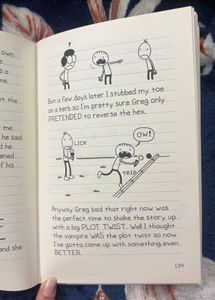 own
is a
me.
But a few days later I stubbed my toe
on a herb so I'm pretty sure Greg only
PRETENDED to reverse the hex.
LICK
OW!
TRIP
Anyway Greg said that right now was
the perfect time to shake the story up
with a big PLOT TWIST. Well I thought
the vampire WAS the plot twist so now
I've gotta come up with something even
BETTER.
the
me
he said
d he
ened
of his
and she
139